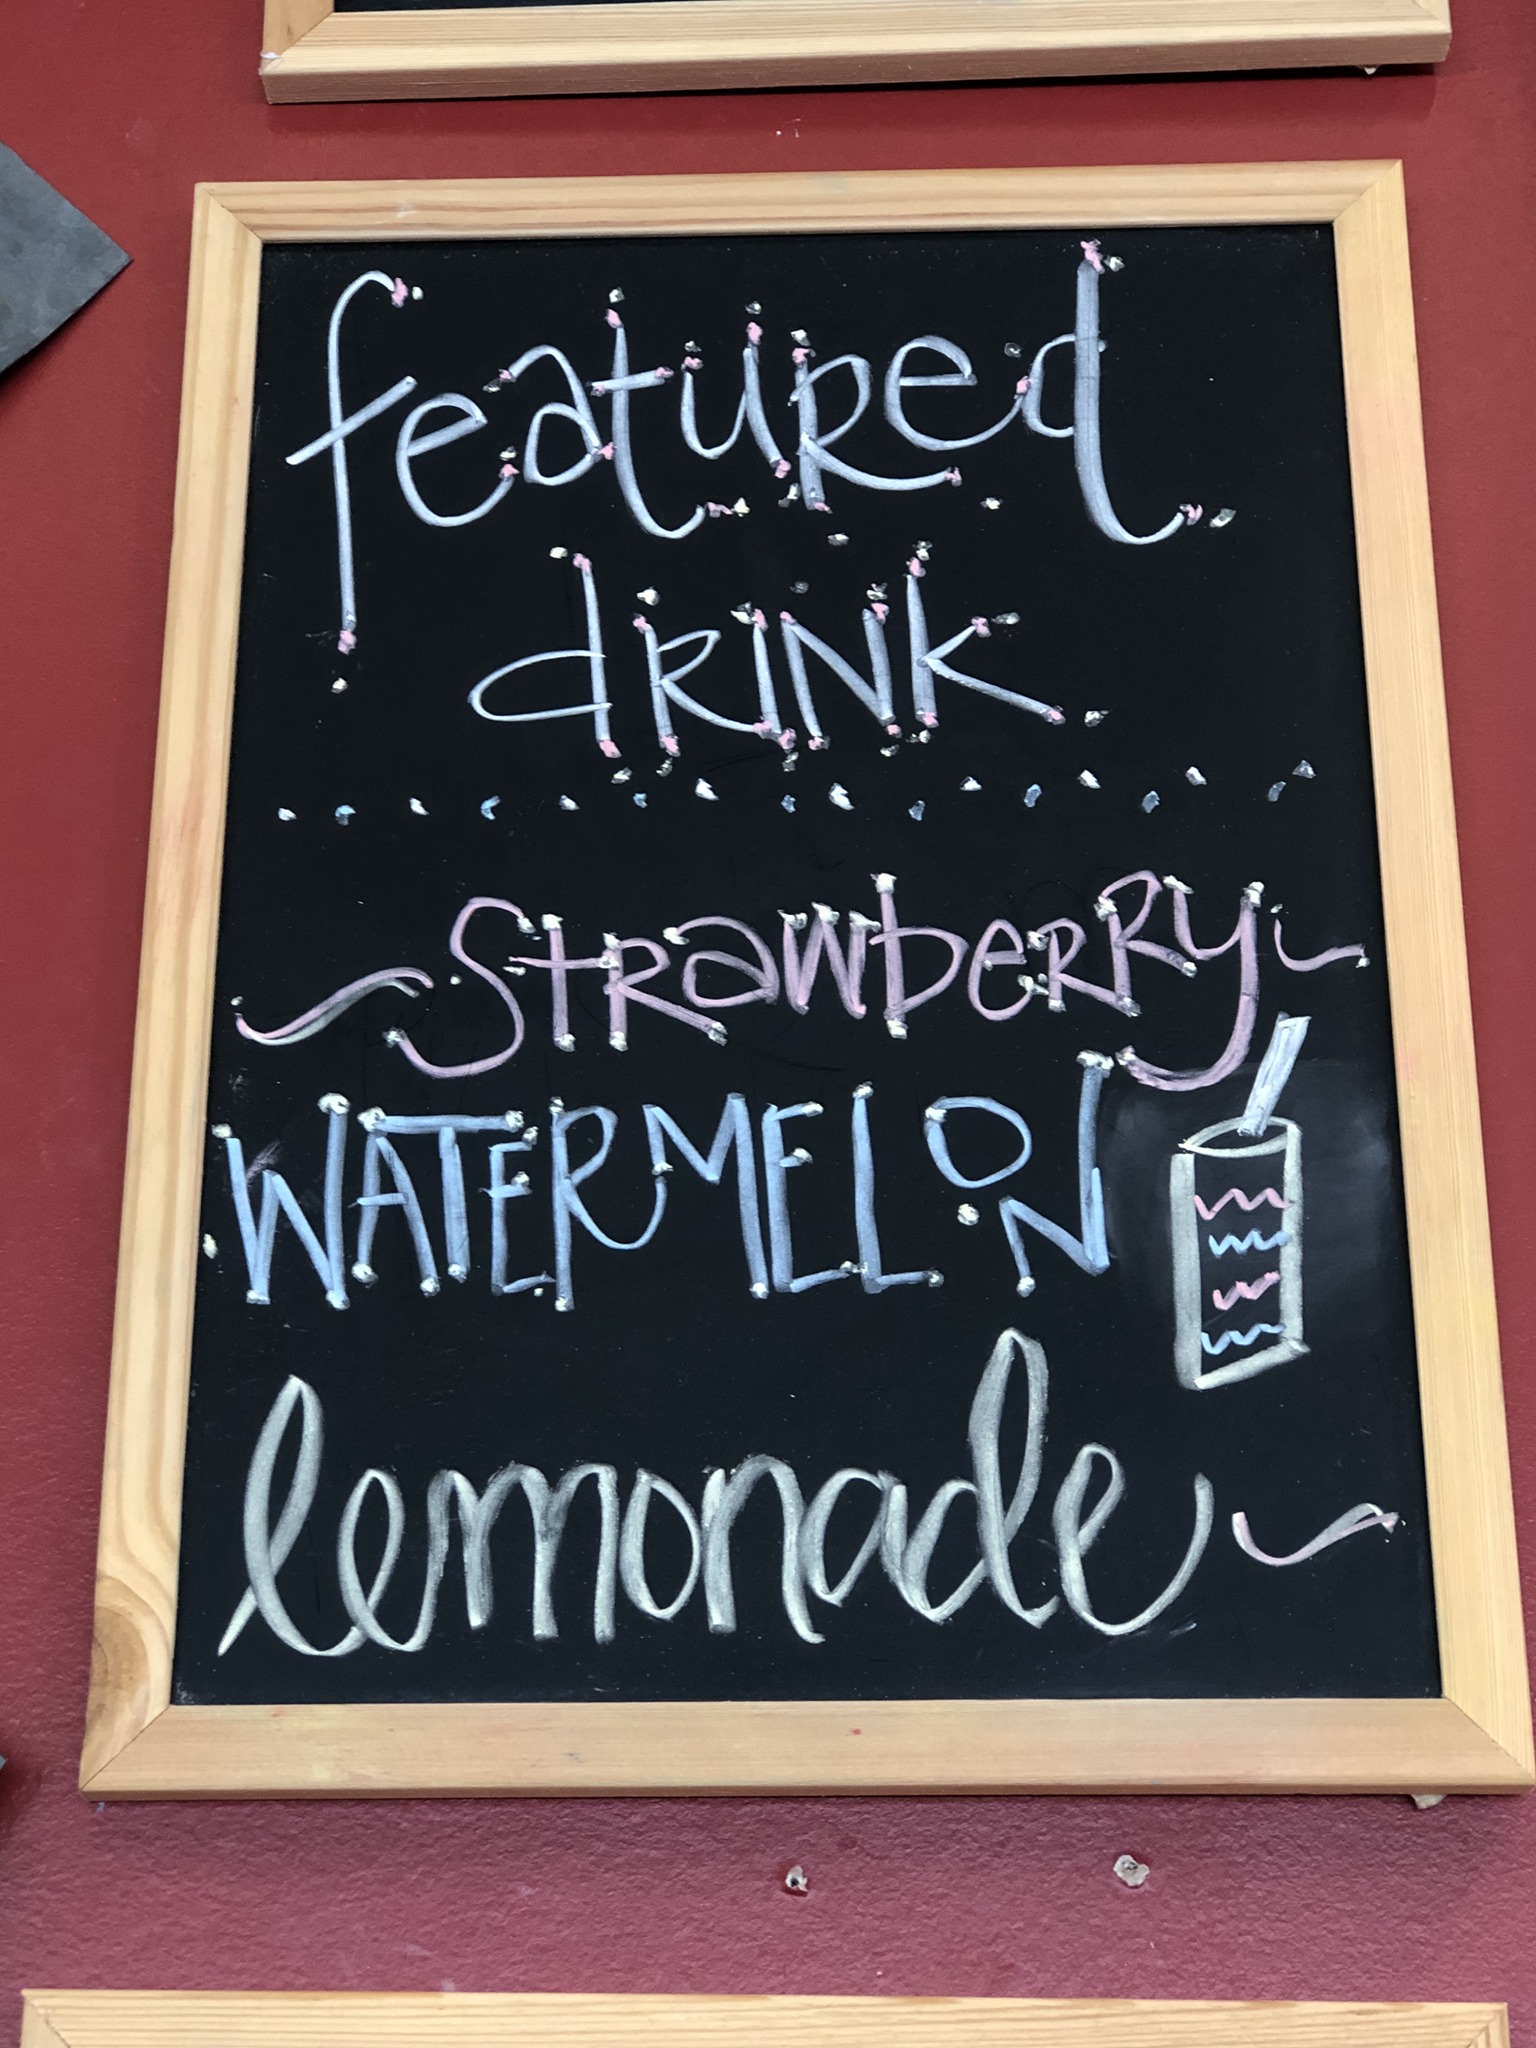 featured
drink
~ Strawberry ~
WATERMELON
lemonade ~